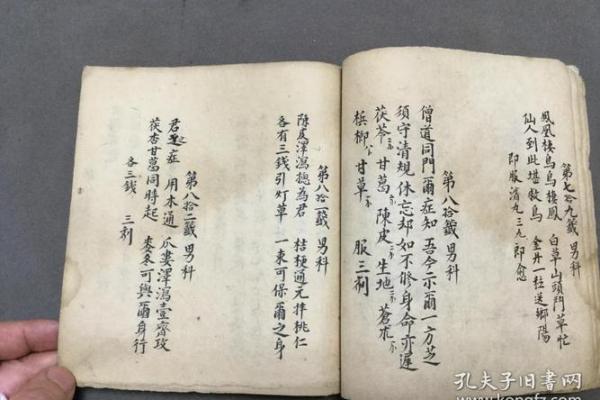 第七十九籤 男科
鳳凰樓鳥鳥樓鳳 白草山頭鬥草忙
仙人到此堪救鳥 金丹一粒送鄉陽
即服清丸三九即愈
第八拾籤 男科
僧道同門爾症知 吾今示爾一方芝
須守清規休忘却 如不修身命亦遲
茯苓 甘葛 陳皮 生地 蒼朮
梹榔 甘草 服三剂
第八拾一籤 男科
陳皮澤瀉穗為君 桔梗通元拌桃仁
各有三錢引灯草 一束可保爾之身
第八拾二籤 男科
君 症 用本通 瓜蔞澤瀉壹齊攻
茯杏甘葛同時起 麥冬可與爾身行
各三錢 三剂
孔夫子旧书网
www.kongfz.com